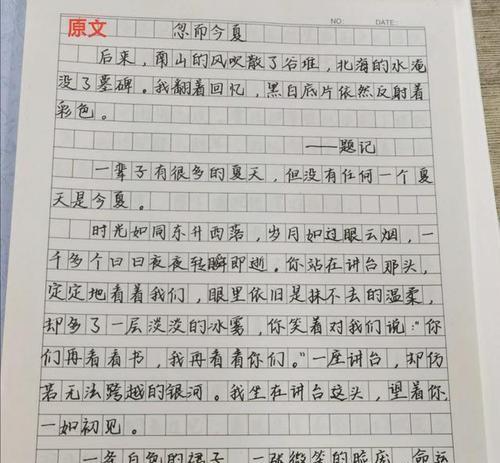 原文
忽而今夏
NO: DATE:
后来，南山的风吹散了谷堆，北海的水淹
没了墓碑。我翻着回忆，黑白底片依然反射着
彩色。
——题记
一辈子有很多的夏天，但没有任何一个夏
天是今夏。
时光如同东升西落，岁月如过眼云烟，一
千多个日日夜夜转瞬即逝。你站在讲台那头，
定定地看着我们，眼里依旧是抹不去的温柔，
却多了一层淡淡的冰雾，你笑着对我们说："你
们再看看书，我再看看你们。"一座讲台，却仿
若无法跨越的银河。我坐在讲台这头，望着你，
一如初见。
一条白色的裙子，一张微笑的脸庞，命运